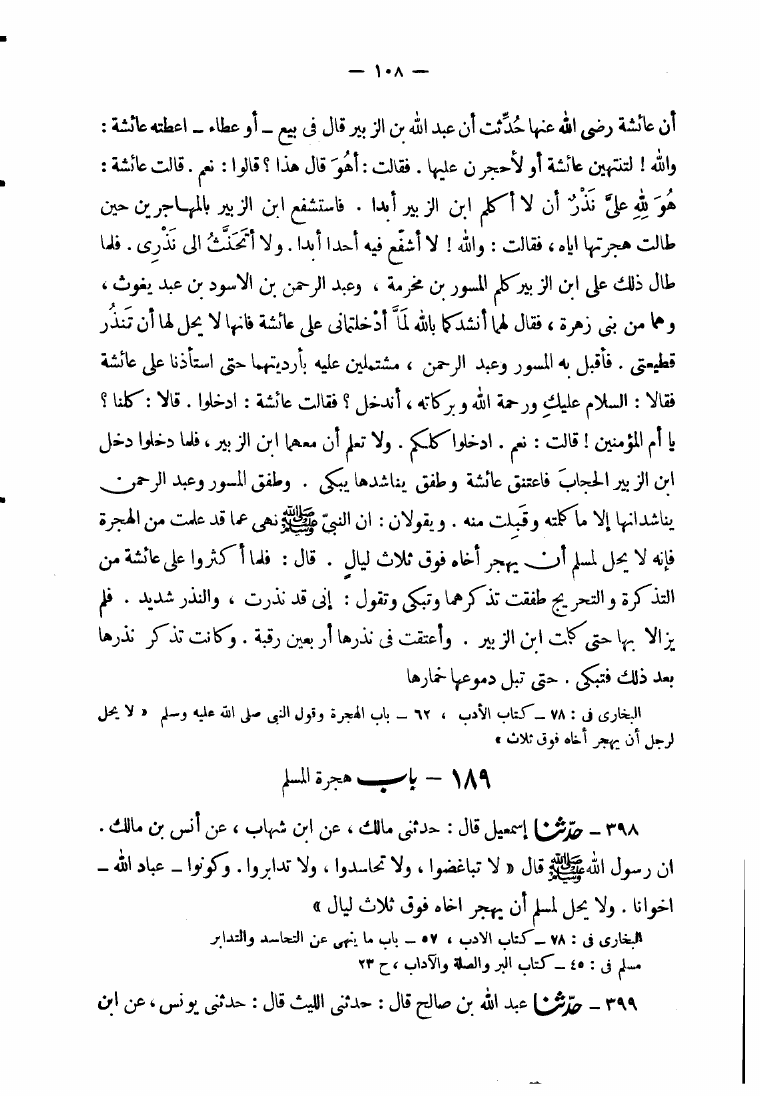 — ١٠٨ —
أن عائشة رضى الله عنها حُدِّثت أن عبد الله بن الزبير قال فى بيع – أو عطاء – اعطته عائشة :
والله ! لتنتهين عائشة أو لأحجرن عليها . فقالت : أهُوَ قال هذا ؟ قالوا : نعم . قالت عائشة :
هُوَ لِلهِ علىَّ نَذْرٌ أن لا أكلم ابن الزبير أبدا . فاستشفع ابن الزبير بالمهاجرين حين
طالت هجرتها اياه ، فقالت : والله ! لا أشفّع فيه أحدا أبدا . ولا أتَحَنَّثُ الى نَذْرِى . فلما
طال ذلك على ابن الزبير كلم المسور بن مخرمة ، وعبد الرحمن بن الاسود بن عبد يغوث ،
وهما من بنى زهرة ، فقال لهما أنشدكما بالله لَمَّا أدْخلتمانى على عائشة فانها لا يحل لها أن تَنذُر
قطيعتى . فأقبل به المسور وعبد الرحمن ، مشتملين عليه بأرديتهما حتى استأذنا على عائشة
فقالا : السلام عليكِ ورحمة الله وبركاته ، أندخل ؟ فقالت عائشة : ادخلوا . قالا : كلنا ؟
يا أم المؤمنين ! قالت : نعم . ادخلوا كلكم . ولا تعلم أن معهما ابن الزبير ، فلما دخلوا دخل
ابن الزبير الحجابَ فاعتنق عائشة وطفق يناشدها يبكى . وطفق المسور وعبد الرحمن
يناشدانها إلا ما كلمته وقَبِلت منه . ويقولان : ان النبىّ ﷺ نهى عما قد علمت من الهجرة
فإنه لا يحل لمسلم أن يهجر أخاه فوق ثلاث ليالٍ . قال : فلما أكثروا على عائشة من
التذكرة والتحريج طفقت تذكرهما وتبكى وتقول : إنى قد نذرت ، والنذر شديد . فلم
يزالا بها حتى كلمت ابن الزبير . وأعتقت فى نذرها أربعين رقبة . وكانت تذكر نذرها
بعد ذلك فتبكى . حتى تبل دموعها خمارها
البخارى فى : ٧٨ – كتاب الأدب ، ٦٢ – باب الهجرة وقول النبى صلى الله عليه وسلم « لا يحل
لرجل أن يهجر أخاه فوق ثلاث »
١٨٩ – باب هجرة المسلم
٣٩٨ – حدّثنا إسمعيل قال : حدثنى مالك ، عن ابن شهاب ، عن أنس بن مالك .
ان رسول الله ﷺ قال « لا تباغضوا ، ولا تحاسدوا ، ولا تدابروا . وكونوا – عباد الله –
اخوانا . ولا يحل لمسلم أن يهجر اخاه فوق ثلاث ليال »
البخارى فى : ٧٨ – كتاب الادب ، ٥٧ – باب ما ينهى عن التحاسد والتدابر
مسلم فى : ٤٥ – كتاب البر والصلة والآداب ، ح ٢٣
٣٩٩ – حدّثنا عبد الله بن صالح قال : حدثنى الليث قال : حدثنى يونس ، عن ابن